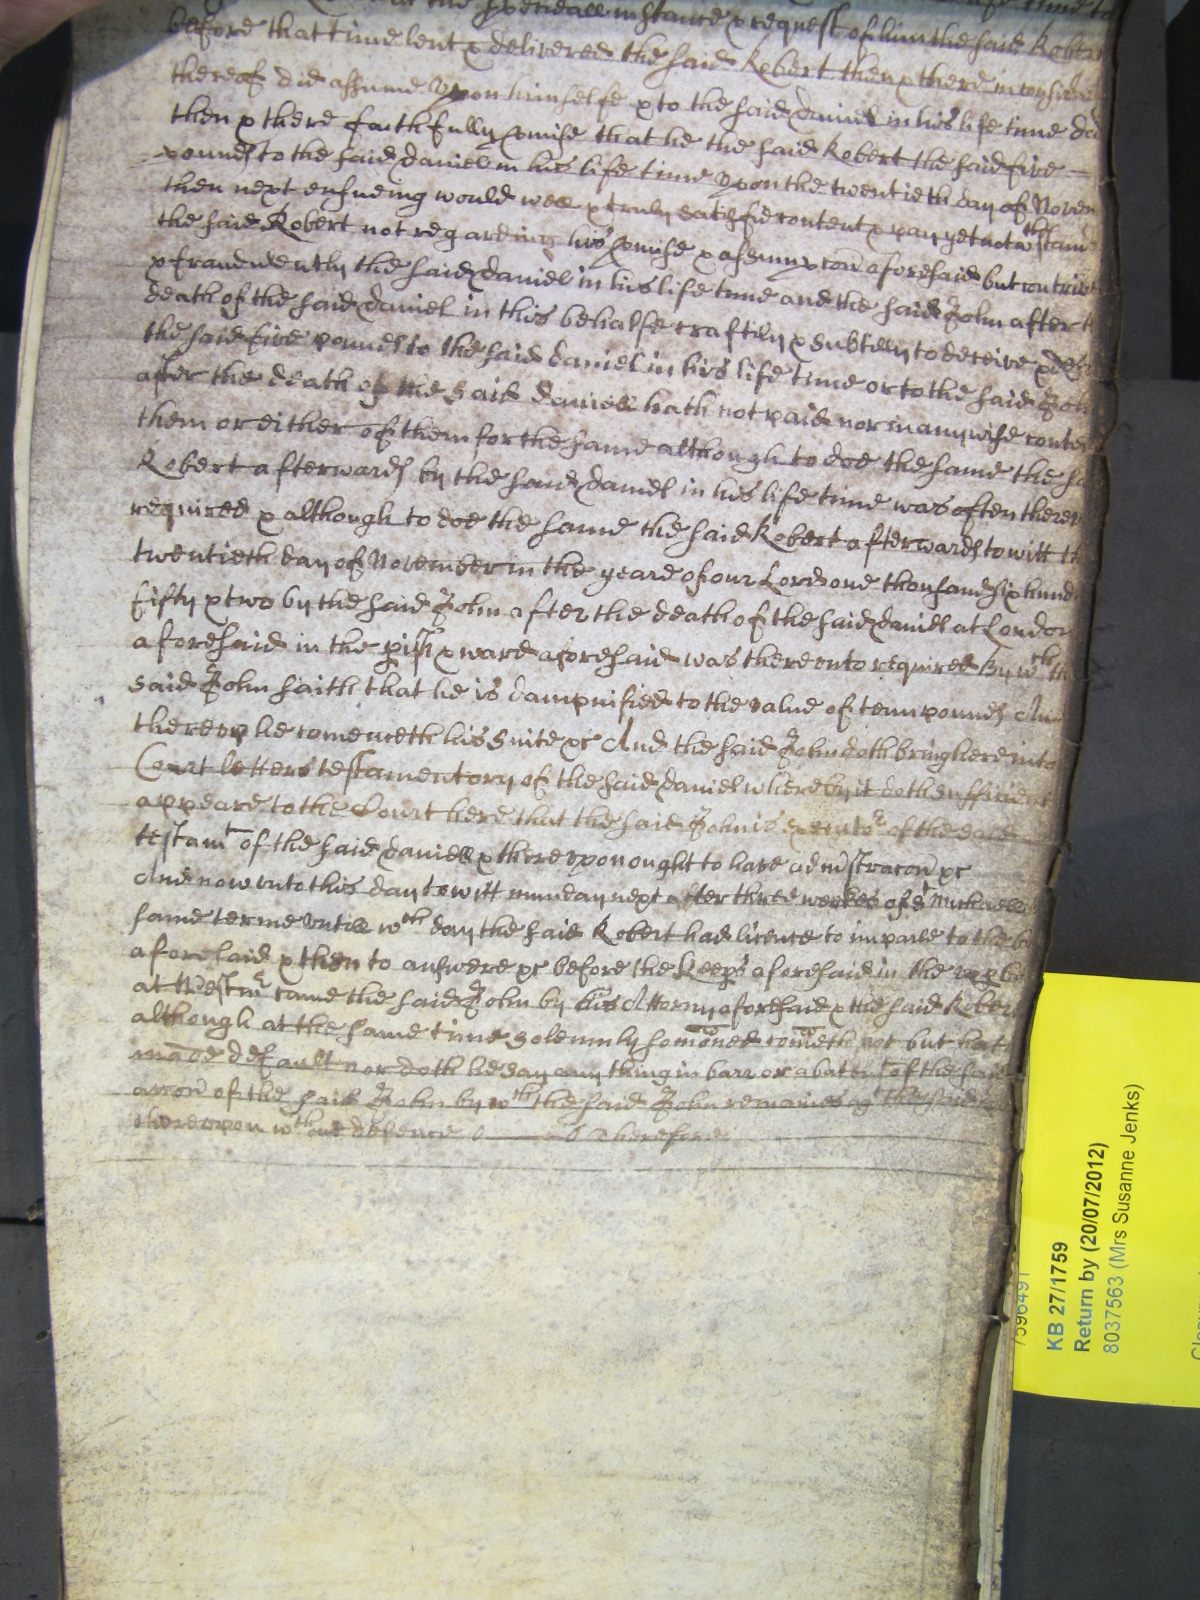 the speciall instance & request of him the said Robert
before that time lent & delivered the said Robert then & there in consider
thereof did assume upon himselfe & to the said Daniel in his life time
then & there faithfully pmise that he the said Robert the said five
pounds to the said Daniel in his life time upon the twentieth day of Novem
then next ensueing would well & truly satisfie content & pay yet notwthstand
the said Robert not regarding his pmise & assumpcon aforesaid but contrive
& fraudulently the said Daniel in his life time and the said John after t
death of the said Daniel in this behalfe craftily & subtilly to deceive &
the said five pounds to the said Daniel in his life time or to the said John
after the death of the said Daniell hath not paid nor in any wise conten
them or either of them for the same although to doe the same the sa
Robert afterwards by the said Daniel in his life time was often thereu
required & although to doe the same the said Robert afterwards to witt th
twentieth day of November in the yeare of our Lord one thousand six hund
fifty & two by the said John after the death of the said Daniel at London
aforesaid in the pish & ward aforesaid was thereunto required By wch th
said John saith that he is dampnified to the value of tenn pounds And
thereup he comenceth his suite &c And the said John doth bring here into
Court letters testamentory of the said Daniel whereby it doth sufficient
appeare to the Court here that the said John is executor of the said
testamt of the said Daniell & thereupon ought to have admstracon &c
And now unto this day to witt munday next after three weekes of St Michaell
same terme untill wch day the said Robert had licence to imparle to the b
aforesaid & then to answere &c before the Keeps aforesaid in the upp be
at Westmr came the said John by his Attorny aforesaid & the said Robert
although at the same time solemnly somoned cometh not but hath
made default nor doth he say any thing in barr or abatemt of the said
accon of the said John by wch the said John remaines agt the said
thereupon wthout defence Therefore
7596491
KB 27/1759
Return by (20/07/2012)
8037563 (Mrs Susanne Jenks)